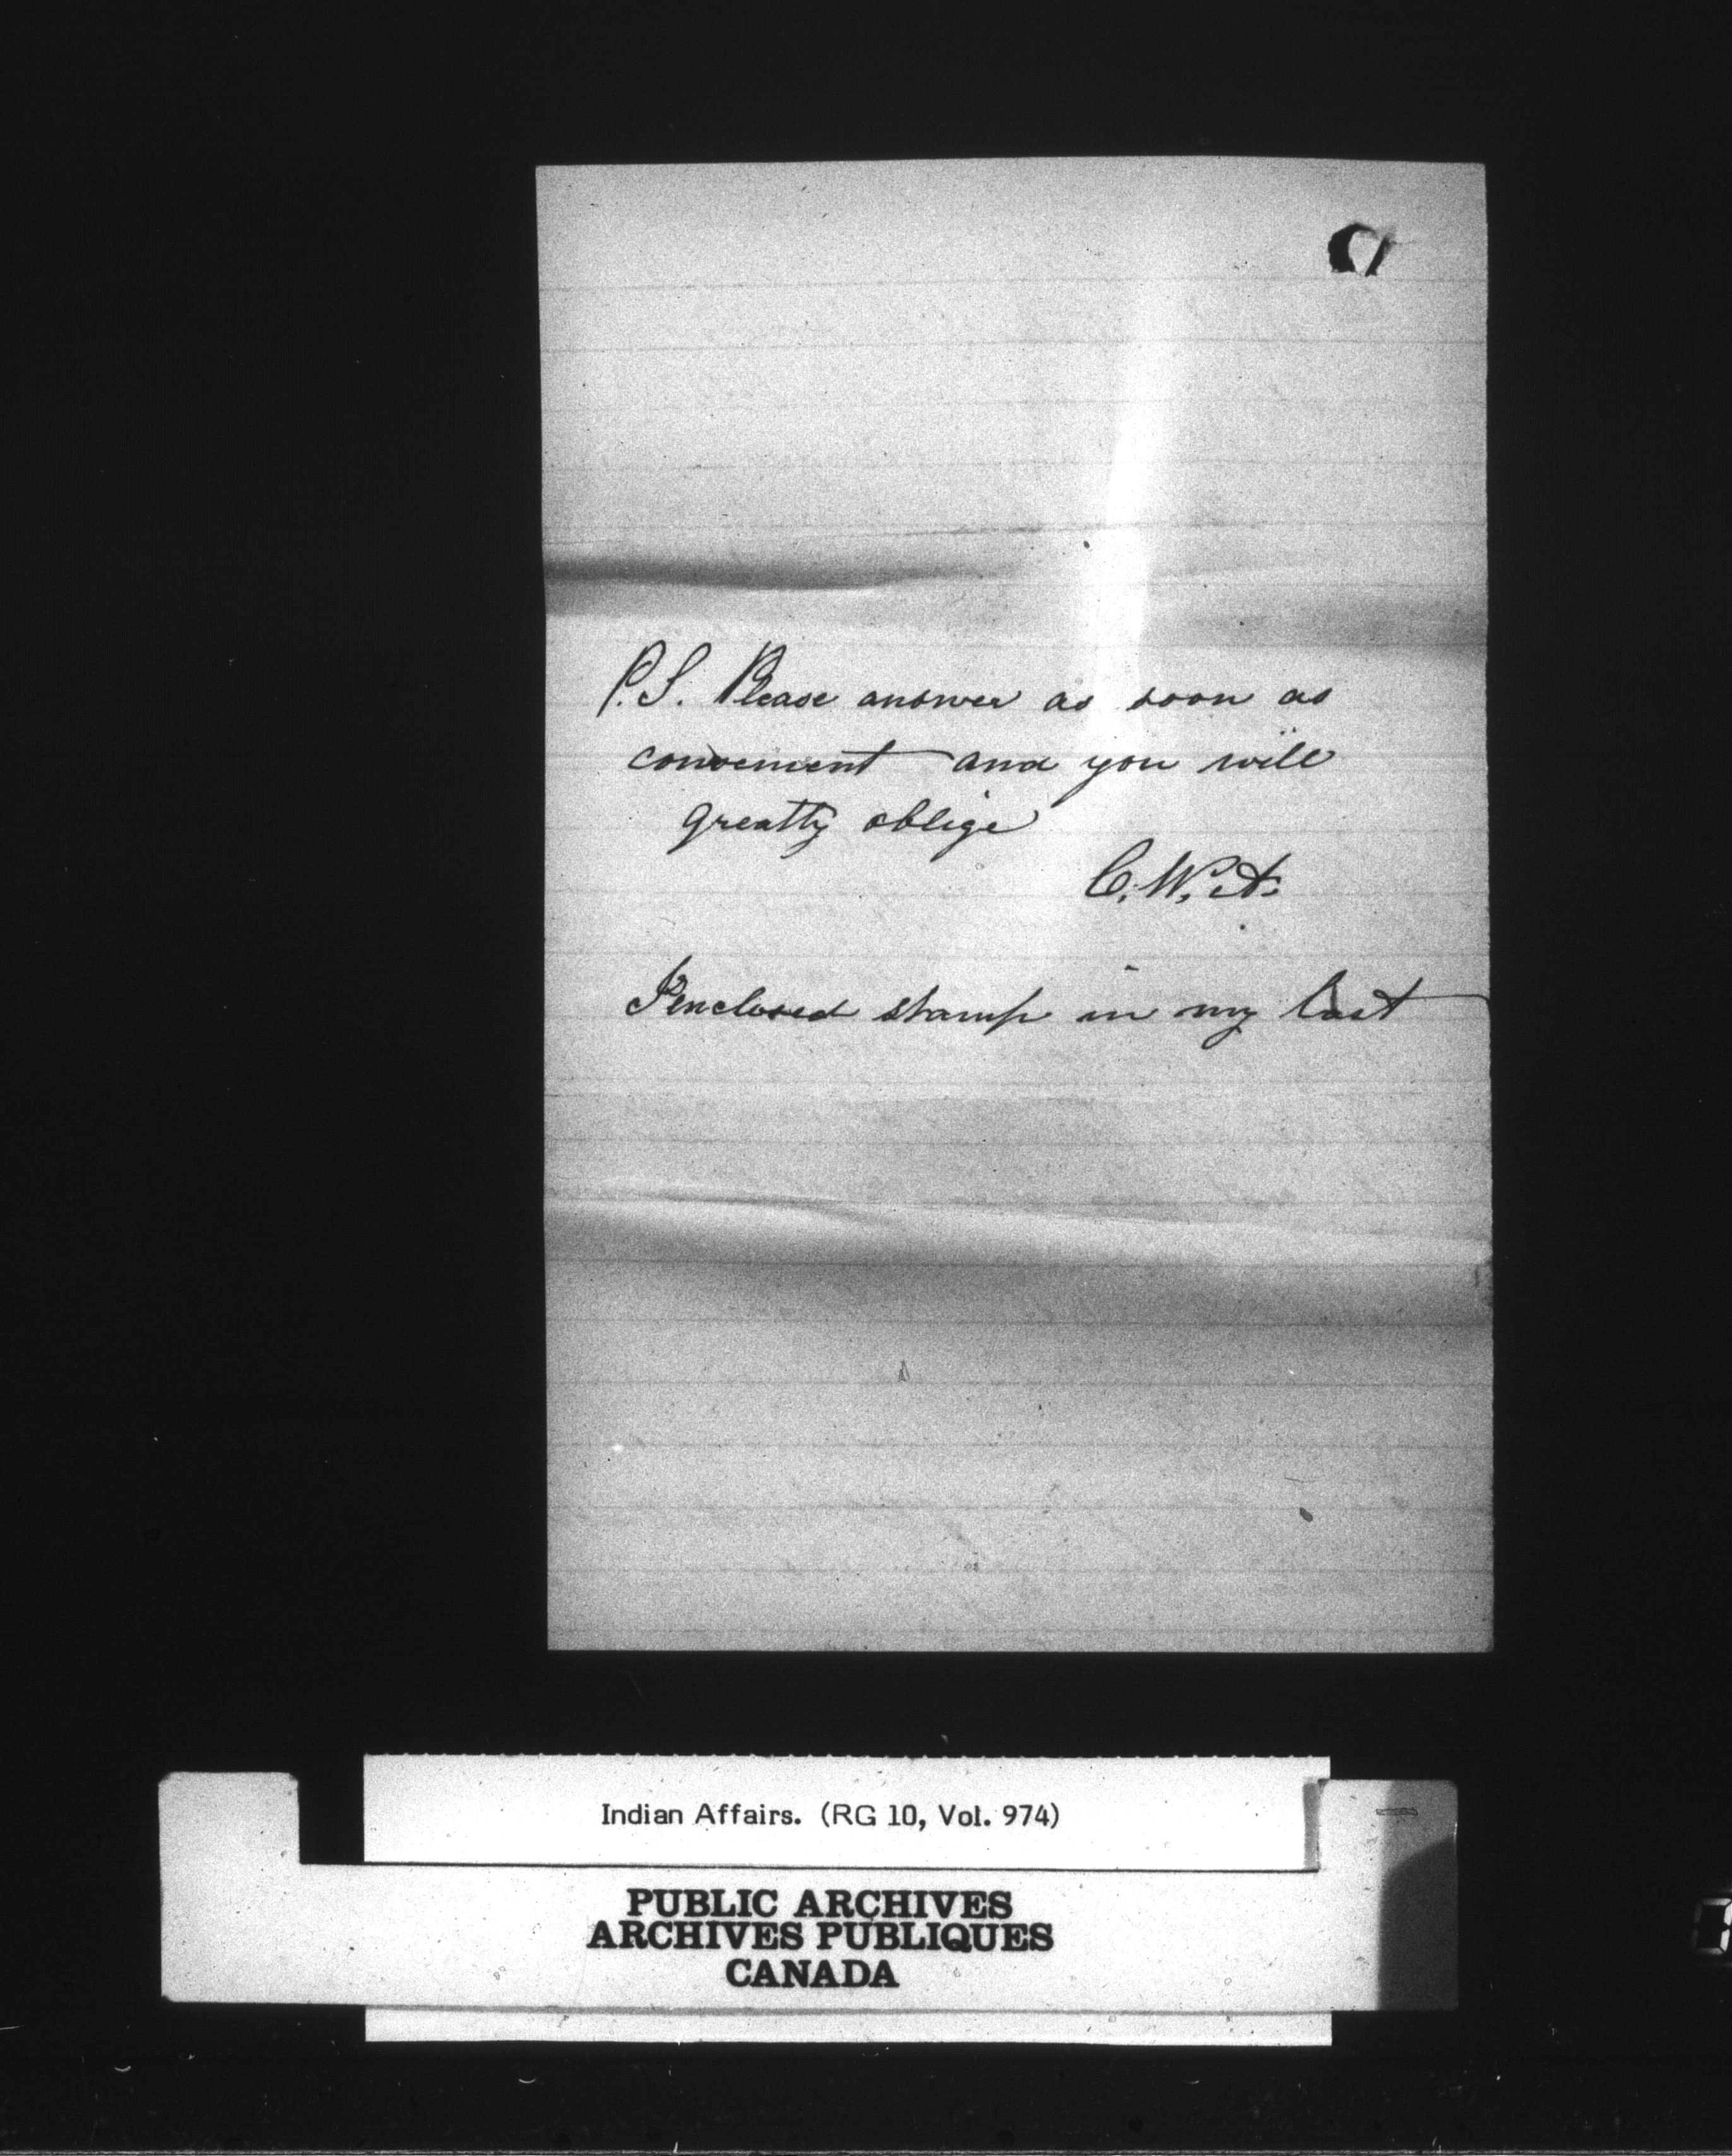 P.S. Please answer as soon as
convenient and you will
greatly oblige
C. W. A.
I enclosed stamp in my last
Indian Affairs. (RG 10, Vol. 974)
PUBLIC ARCHIVES
ARCHIVES PUBLIQUES
CANADA